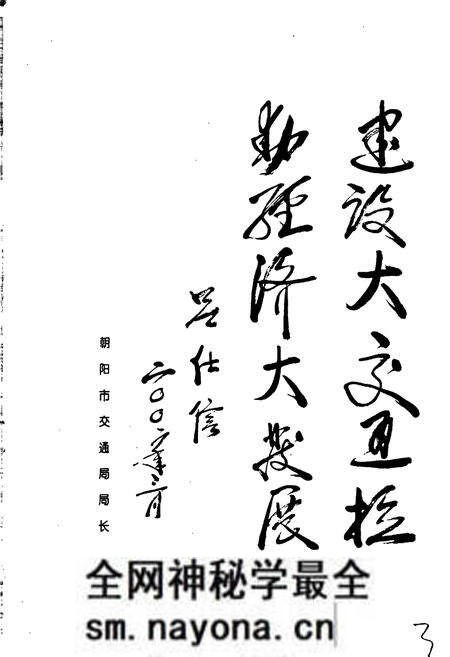 建设大交通推
动经济大发展
吴仕信
二〇〇六年三月
朝阳市交通局局长
全网神秘学最全
sm.nayona.cn
3